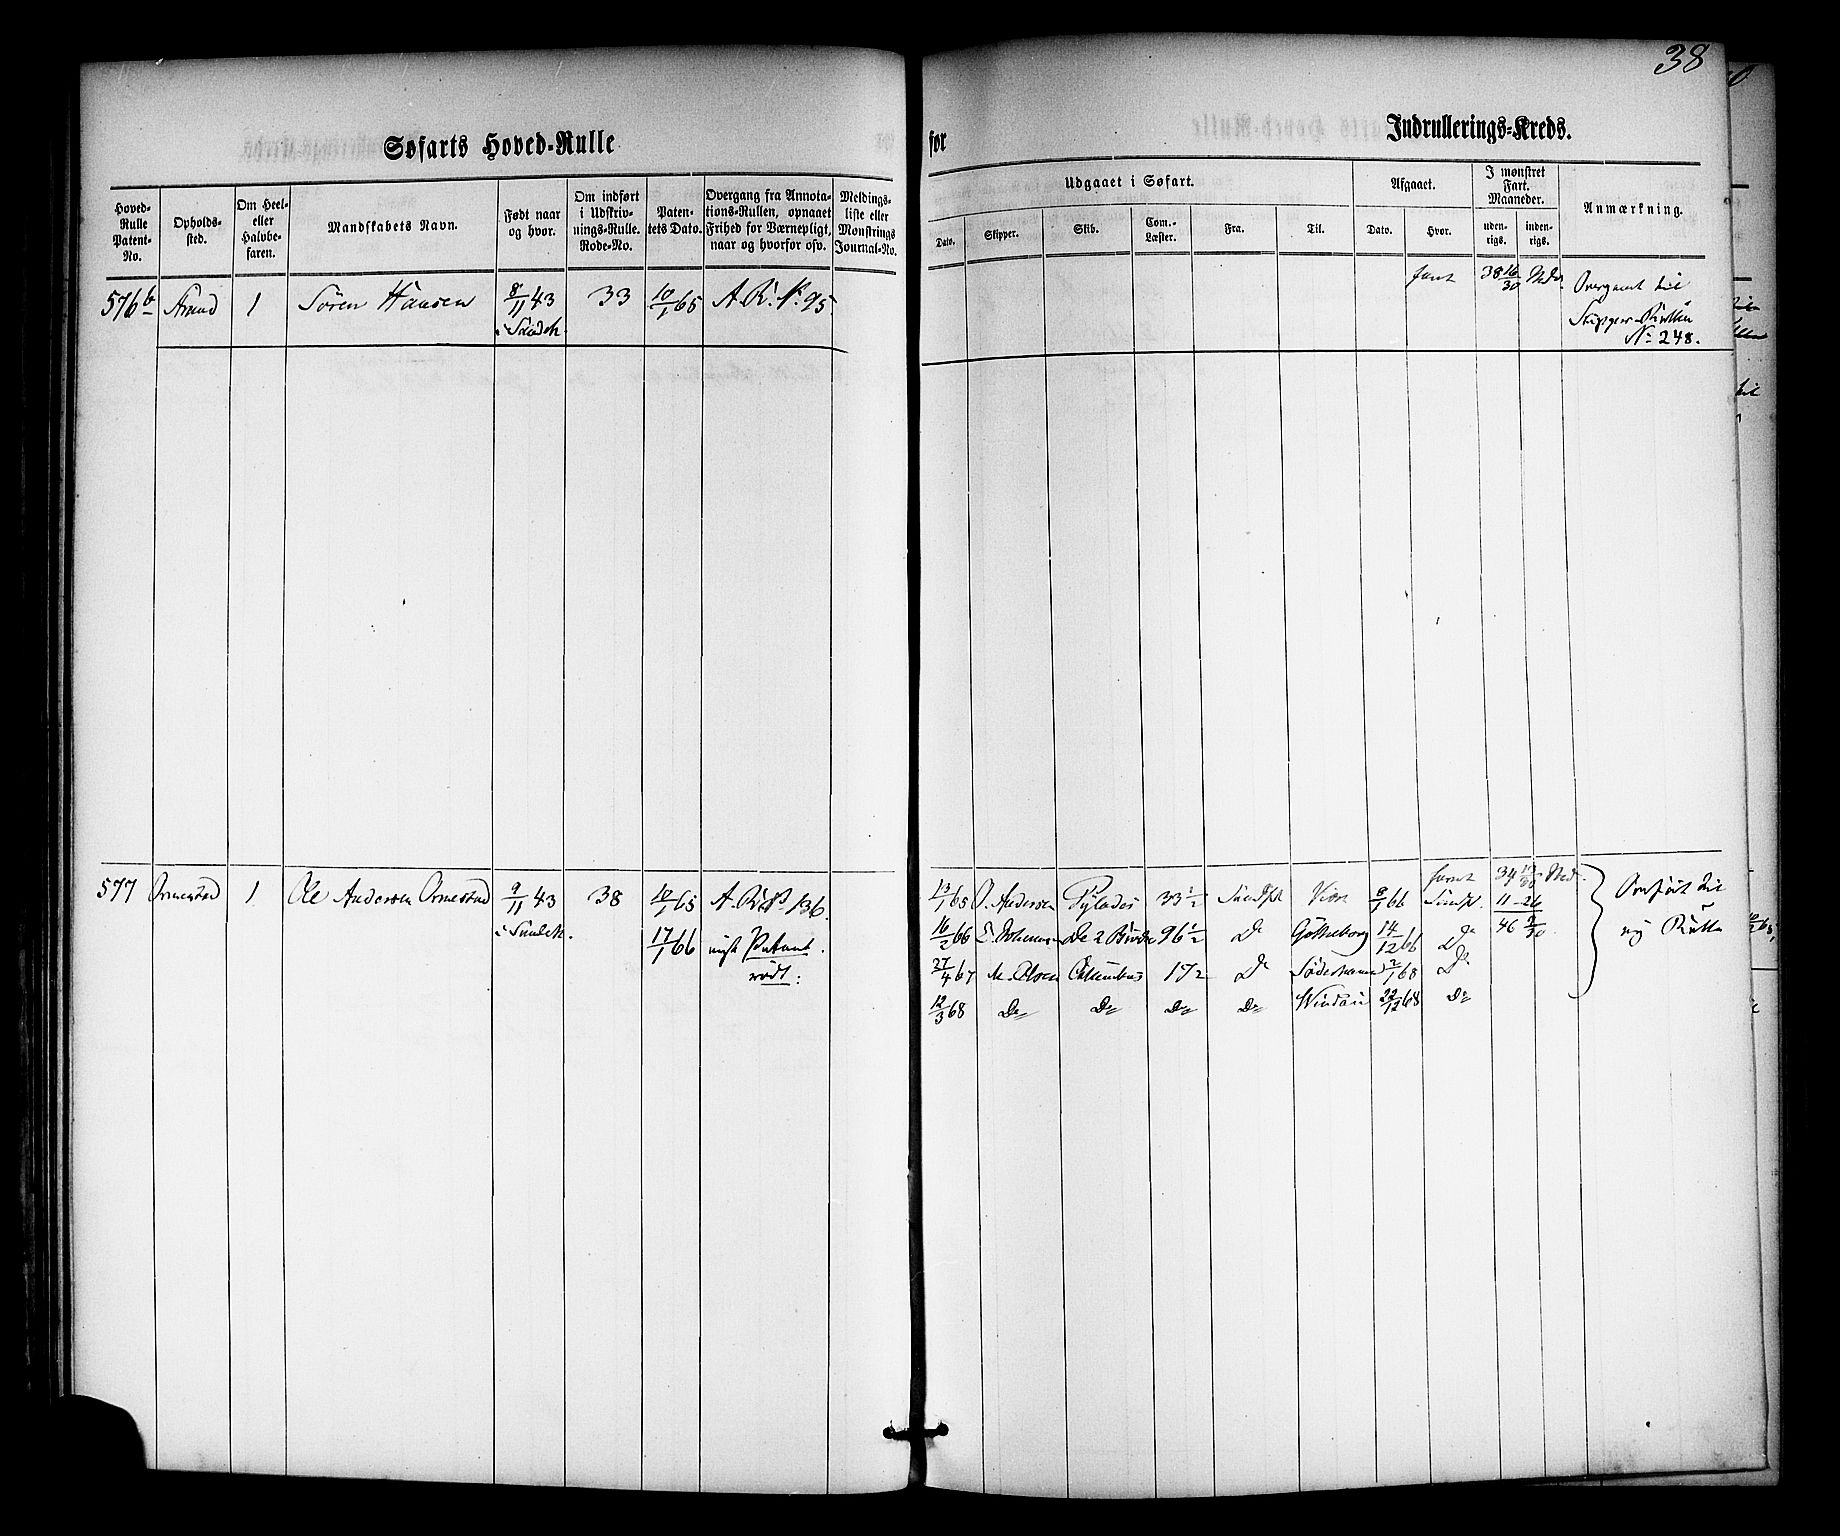 38
Søfarts Hoved-Rulle
for
Indrullerings-Kreds.
Hoved-Rulle Patent-No.
Opholds-sted.
Om Heel- eller Halvbe-faren.
Mandskabets Navn.
Født naar og hvor.
Om indført i Udskriv-nings-Rulle. Rode-No.
Paten-tets Dato.
Overgang fra Annota-tions-Rullen, opnaaet Frihed for Værnepligt, naar og hvorfor osv.
Meldings-liste eller Mønstrings Journal-No.
Udgaaet i Søfart.
Afgaaet.
I mønstret Fart. Maaneder.
Anmærkning.
Dato.
Skipper.
Skib.
Com.-Læster.
Fra.
Til.
Dato.
Hvor.
uden-rigs.
inden-rigs.
576b Strand 1 Sören Hansen 8/11 43 33 10/1 65 A. R. No. 95
38 16/30 Overgaaet til
Skipper-Rullen
No 248.
577 Ormestad 1 Ole Andersen Ormestad 9/11 43 38 10/1 65 A. R. No 136.
17/1 66 nyt Patent
rødt:
34 12/30
13/1 65 O. Andersen Pylades 33 1/2 8/1 66 11-26 Overført til
16/2 66 De 2 Brødre 96 1/2 Do Gøtheborg 14/12 66 Do 46 8/30 ny Rulle
27/4 67 M. Olsen Columbus 172 Do Söderhamn 2/1 68 Do
12/3 68 Do Do Do Do Windau 22/12 68 Do